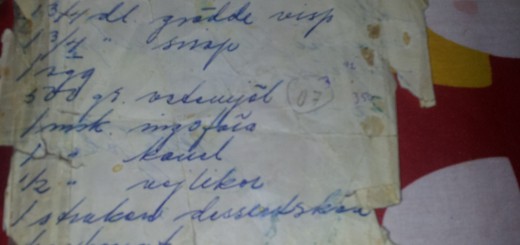 1 3/4 dl. grädde visp
1 3/4 " sirap
1 ägg
500 gr. vetemjöl 07
1 msk. ingefära
1 " kanel
1/2 " nejlikor
1 struken dessertsked